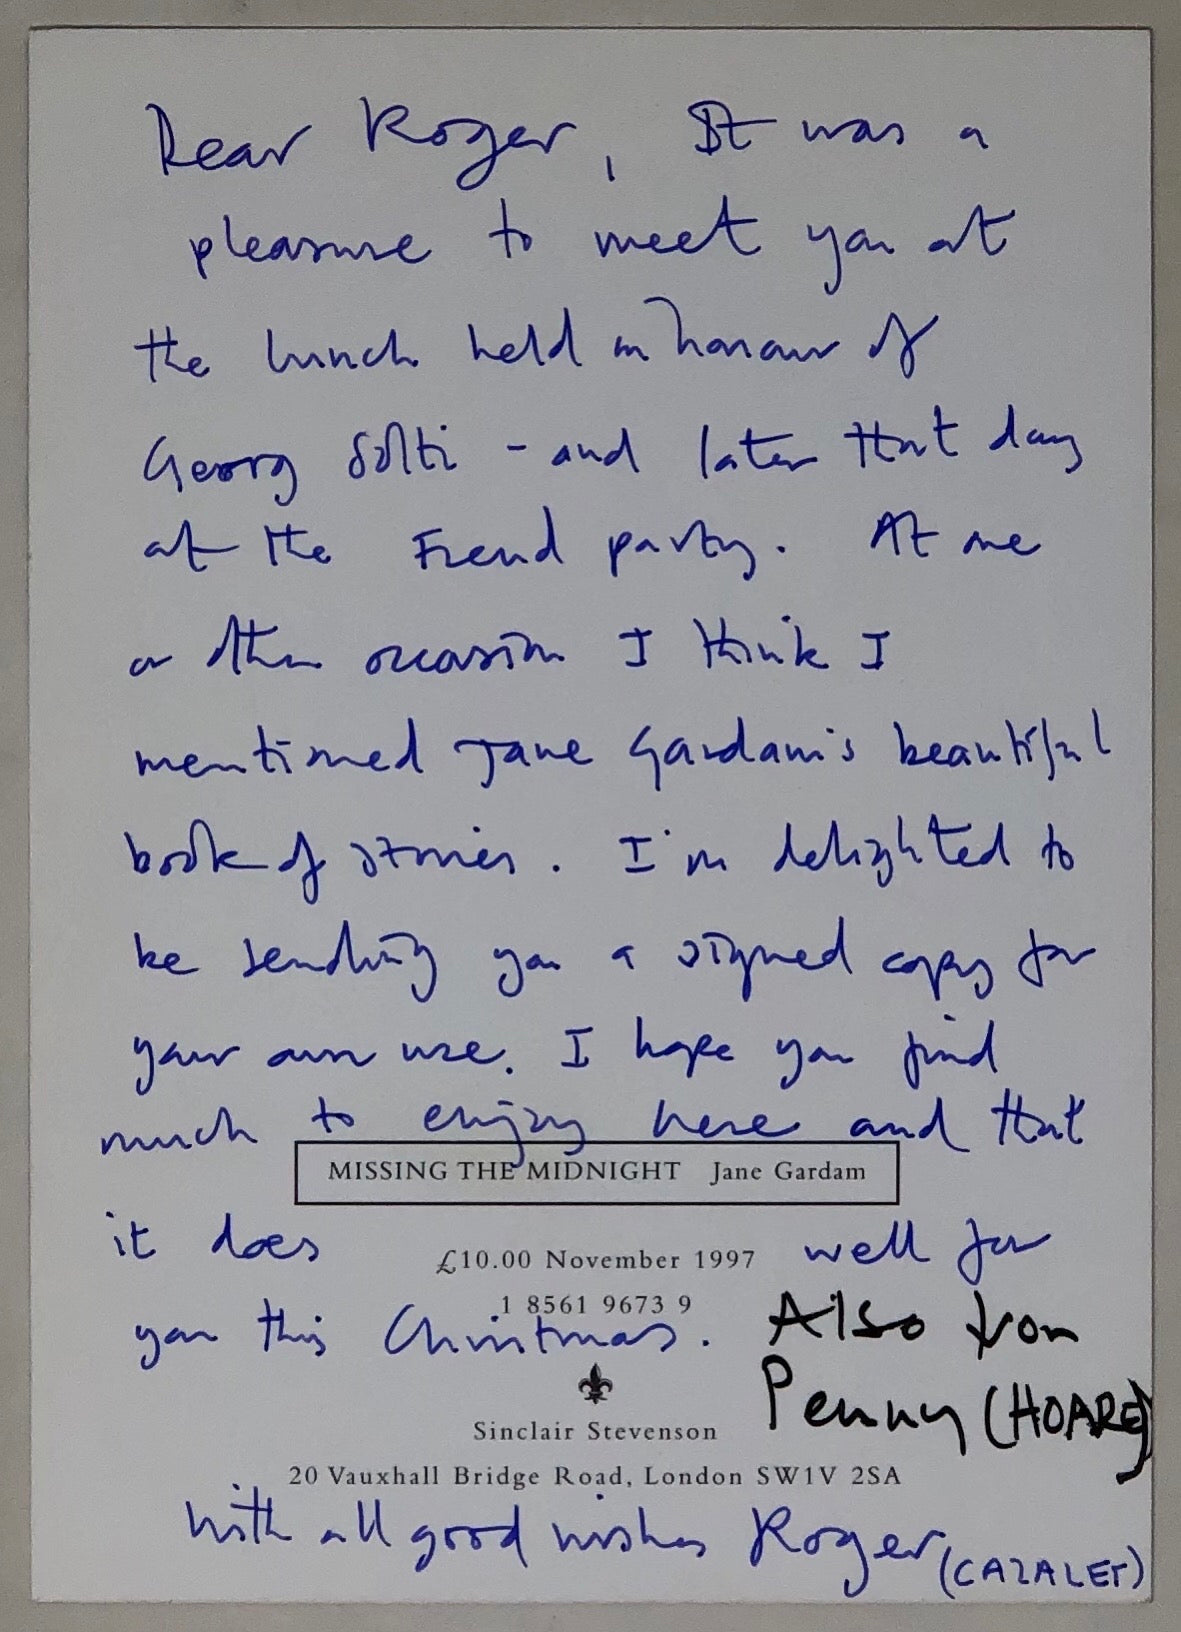 Dear Roger, It was a
pleasure to meet you at
the lunch held in honour of
Georg Solti - and later that day
at the Freud party. At one
or other occasion I think I
mentioned Jane Gardam's beautiful
book of stories. I'm delighted to
be sending you a signed copy for
your own use. I hope you find
much to enjoy here and that
MISSING THE MIDNIGHT Jane Gardam
it does well for
£10.00 November 1997
1 8561 9673 9
you this Christmas. Also from
Penny (HOARE)
Sinclair Stevenson
20 Vauxhall Bridge Road, London SW1V 2SA
With all good wishes Roger (CAZALET)